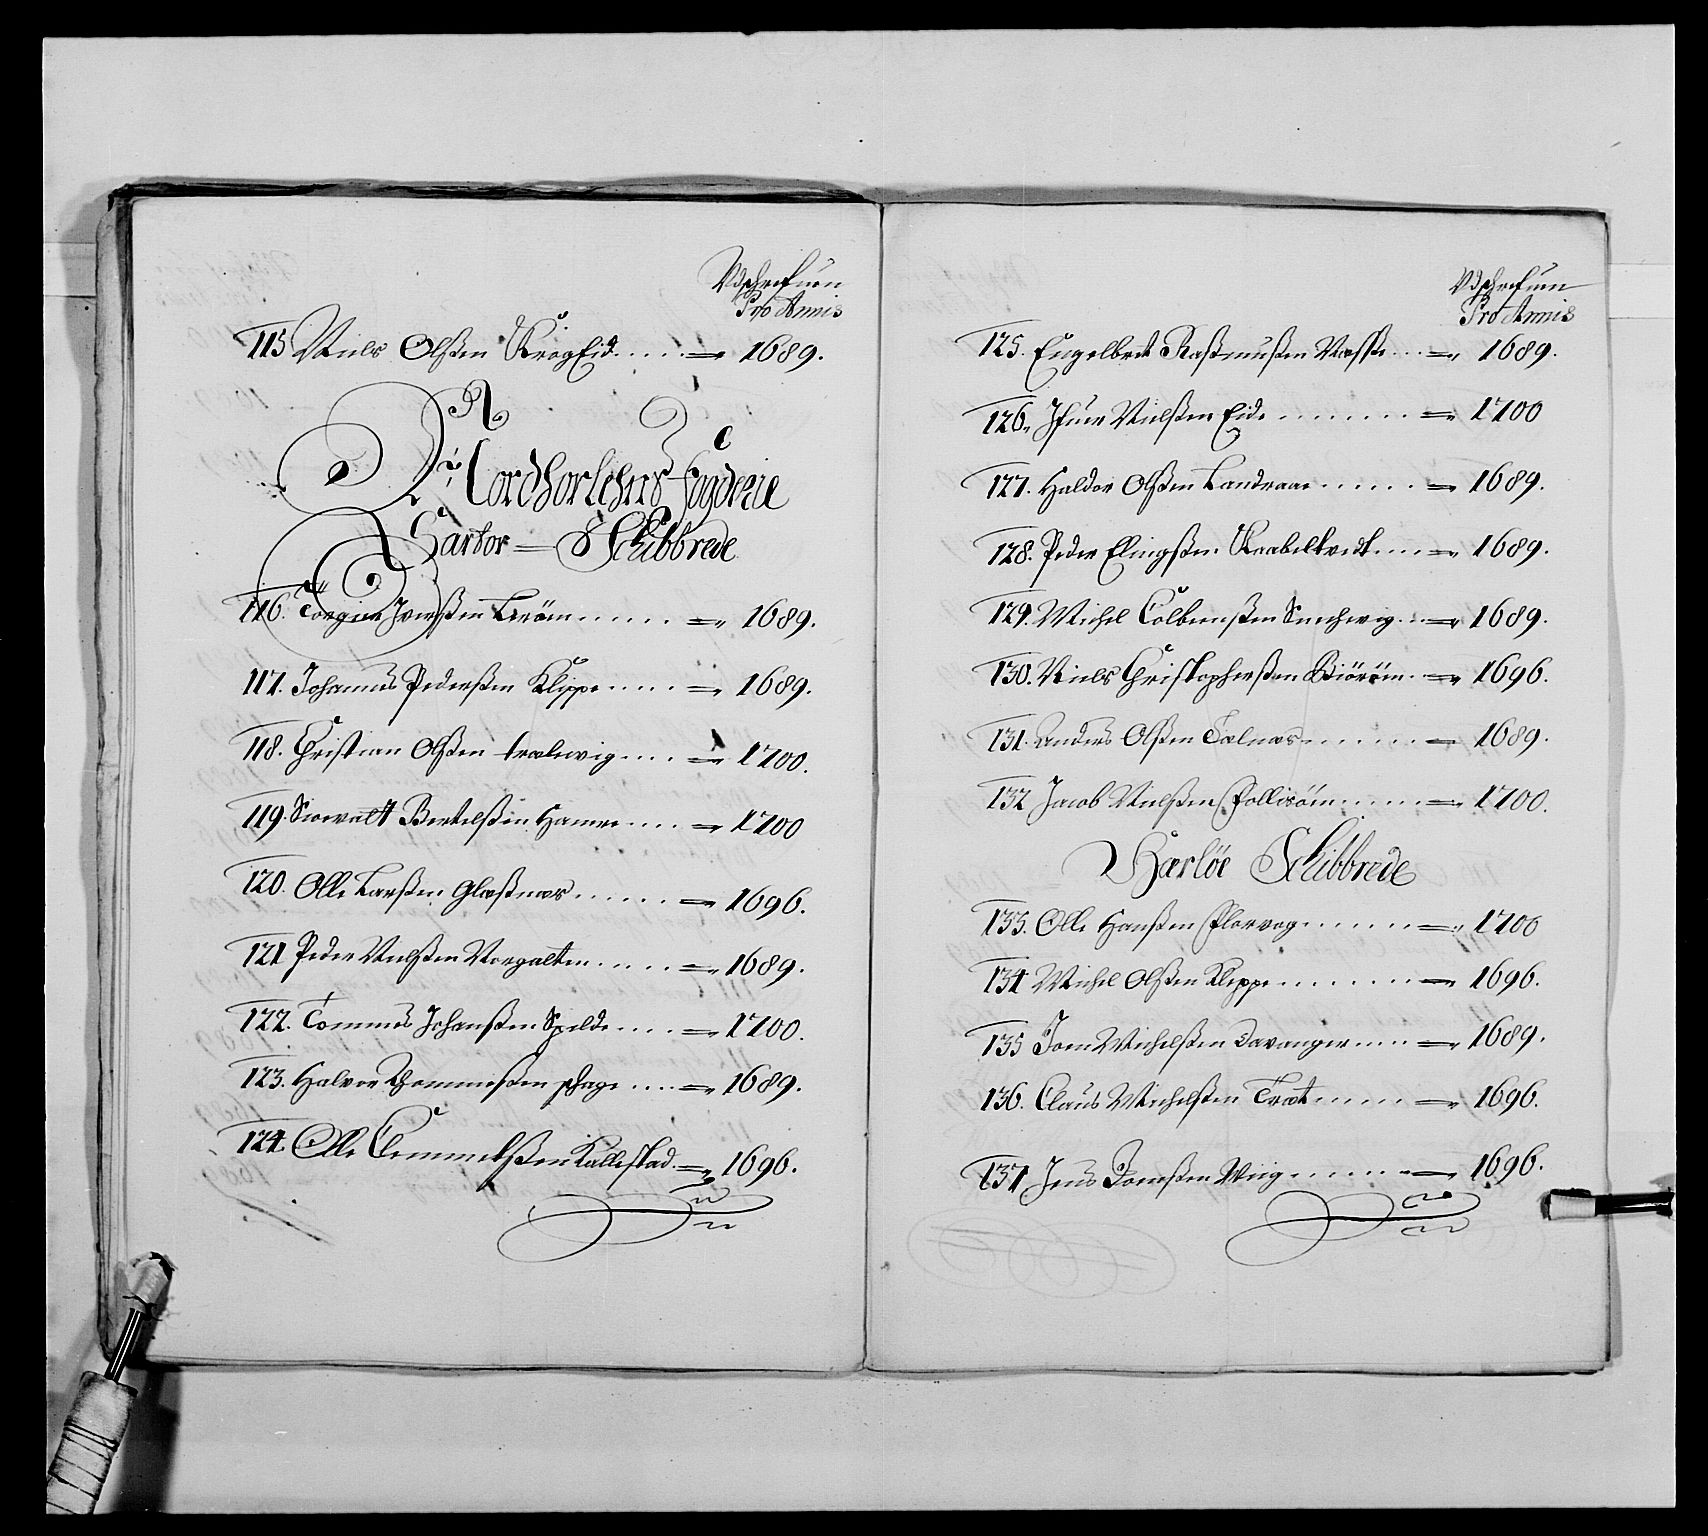 Udschrefuen
Pro Annis
115 Niels Olßen KrogEid ..... = 1689.
Nordhorlehns Fogderie
Sartor = Schibbrede
116. Torgier Iverßen Lerøen ...... = 1689.
117. Johannes Pederßen Klippe ..... = 1689.
118. Christian Olßen trælewig .... = 1700.
119. Siowalt Bertelßen Hamre .... = 1700
120. Olle Larßen Glæßnæs ...... = 1696.
121 Peder Nielßen Norgalten ..... = 1689.
122. Tommes Johanßen Spilde .... = 1700.
123. Halvor Thommeßen schage .... = 1689.
124. Olle Clemmetßen Kallestad = 1696.
Udschrefuen
Pro Annis
125. Engelbret Raßmußen Næsse ... = 1689.
126. Ifuer Nielßen Eide ........ = 1700
127. Haldor Olßen Landraae ...... = 1689.
128. Peder Elingßen Knabelkredt .... = 1689.
129. Michel Colbenßen Snechewig .. = 1689.
130. Niels Christopherßen Biörøen .. = 1696.
131. Anders Olßen Tælnæs ...... = 1689.
132 Jacob Nielßen Follisøen ..... = 1700.
Herløe Schibbrede
133. Olle Hanßen Florvog ...... = 1700
134 Michel Olßen Kleppe ........ = 1696.
135 Joen Michelßen Davanger .... = 1689.
136. Claus Michelßen Træt ..... = 1696.
137 Jens Joenßen Wiig ...... = 1696.